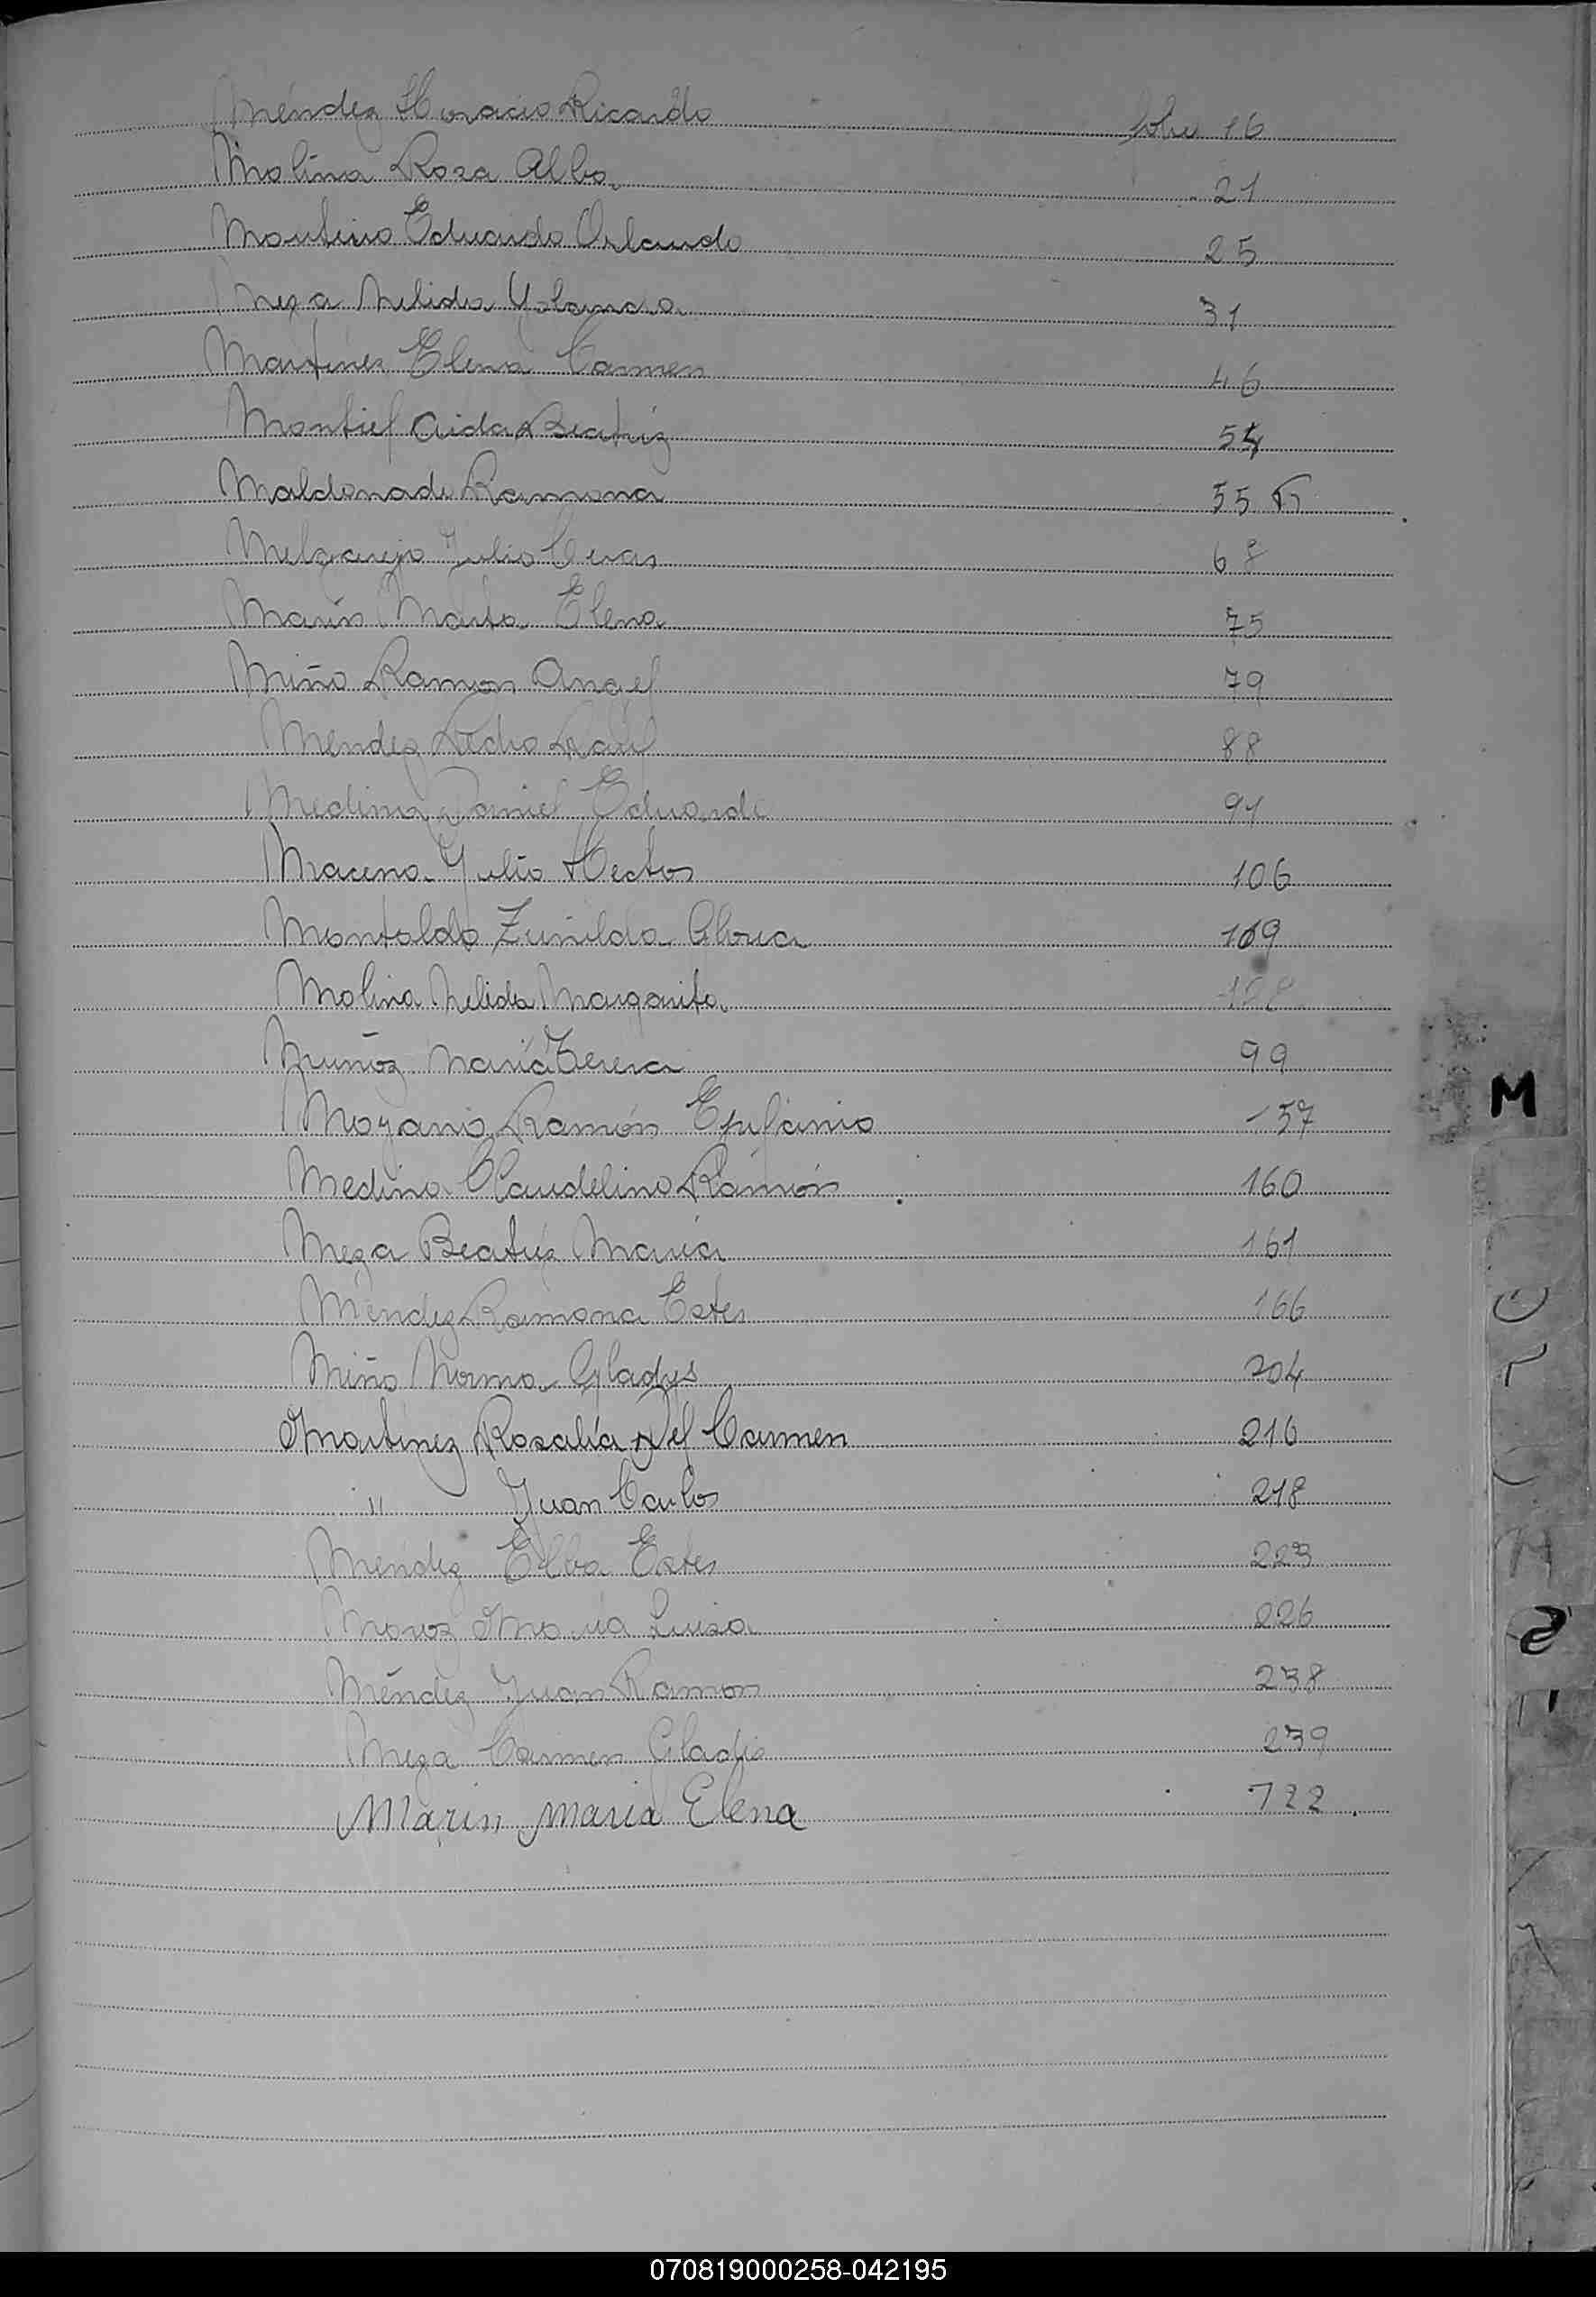 Méndez Horacio Ricardo folio 16
Molina Rosa Alba 21
Monteiro Eduardo Orlando 25
Meza Nelida Yolanda 31
Martinez Elena Carmen 46
Montiel Aida Beatriz 54
Maldonado Ramona 55
Melgarejo Julio Cesar 68
Marín Marta Elena 75
Miño Ramon Angel 79
Mendez Pedro Raúl 88
Medina Daniel Eduardo 94
Maceno Julio Hector 106
Montaldo Zunilda 109
Molina Nelida Margarita
Muñoz María Teresa 99
Moyano Ramón Epifanio 157
Medina Claudelino Ramón 160
Meza Beatriz María 161
Méndez Ramona Ester 166
Miño Norma Gladys 204
Martinez Rosalía Del Carmen 216
" Juan Carlos 218
Mendez Elba Ester 223
María Luisa 226
Méndez Juan Ramon 238
Meza Carmen Gladis 239
Marin Maria Elena 122
M
070819000258-042195